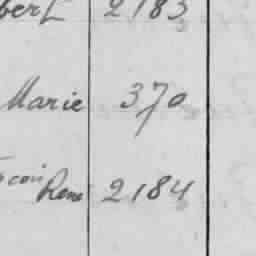 bert 2183
Marie 370
çois René 2184